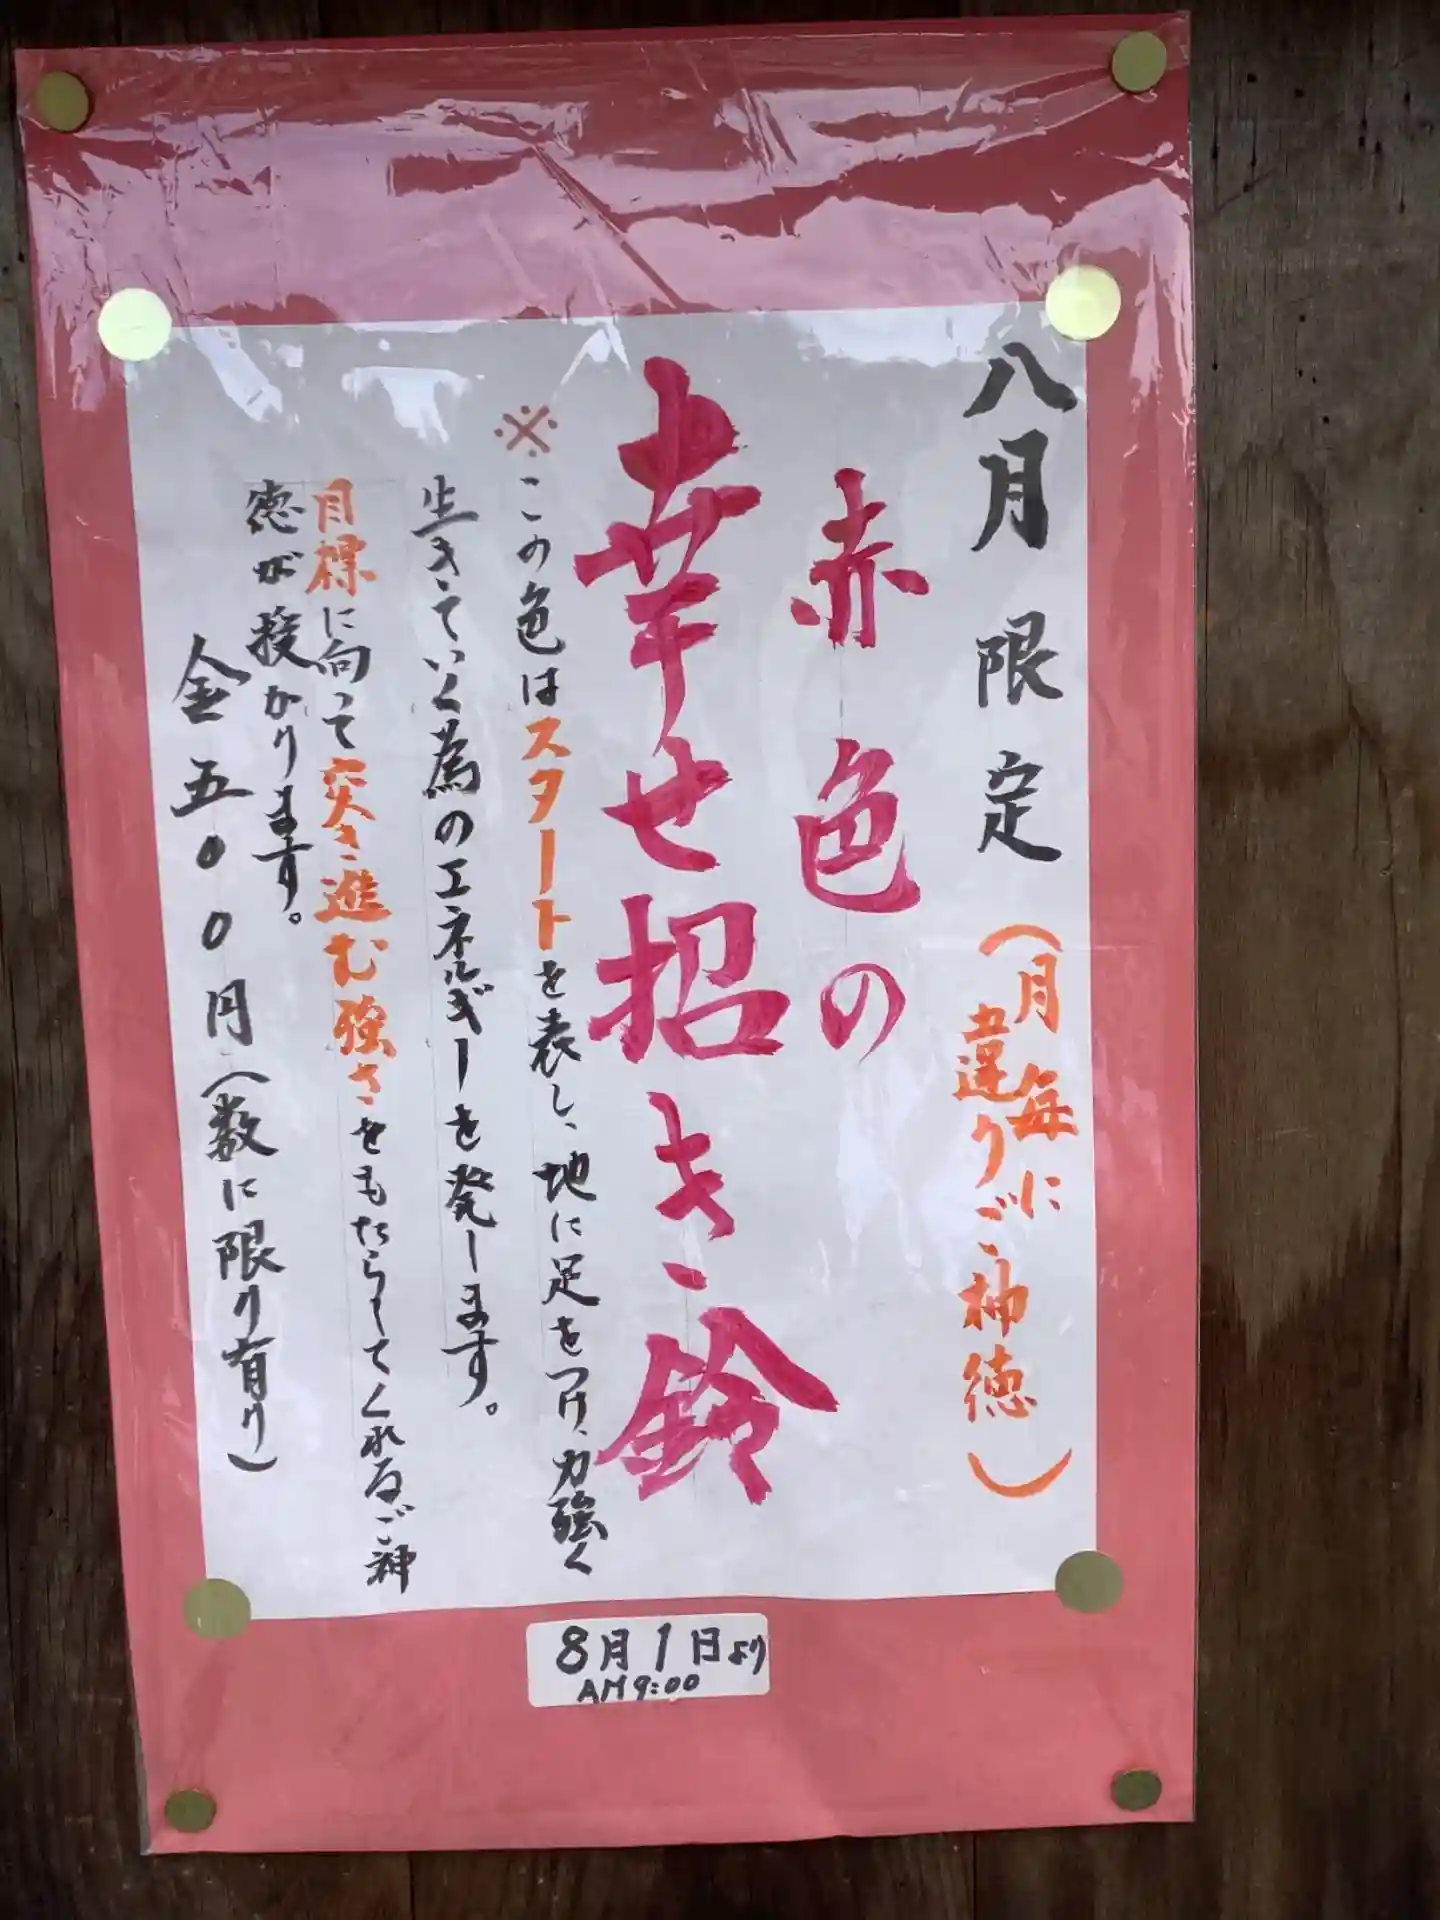 八月限定
(月毎に
違うご神徳)
赤色の
幸せ招き鈴
※この色はスタートを表し、地に足をつけ、力強く
生きていく為のエネルギーを発します。
目標に向って突き進む強さをもたらしてくれるご神
徳が授かります。
金五００円(数に限り有り)
8月1日より
AM9:00